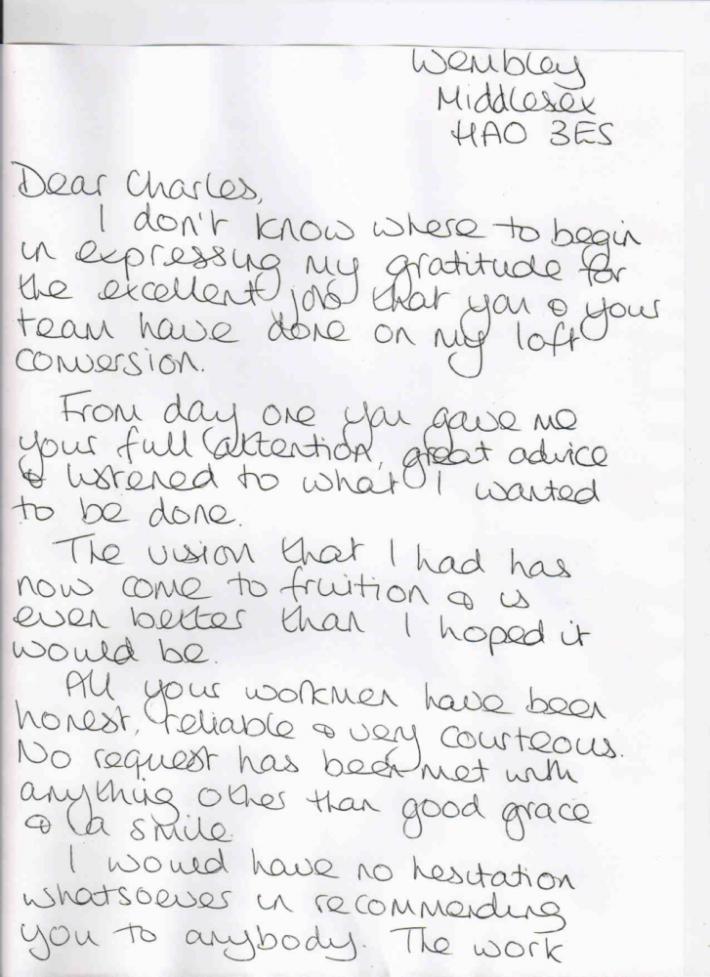 Wembley
Middlesex
HA0 3ES
Dear Charles,
I don't know where to begin
in expressing my gratitude for
the excellent job that you & your
team have done on my loft
conversion.
From day one you gave me
your full attention, great advice
& listened to what I wanted
to be done.
The vision that I had has
now come to fruition & is
even better than I hoped it
would be.
All your workmen have been
honest, reliable & very courteous.
No request has been met with
anything other than good grace
& a smile.
I would have no hesitation
whatsoever in recommending
you to anybody. The work